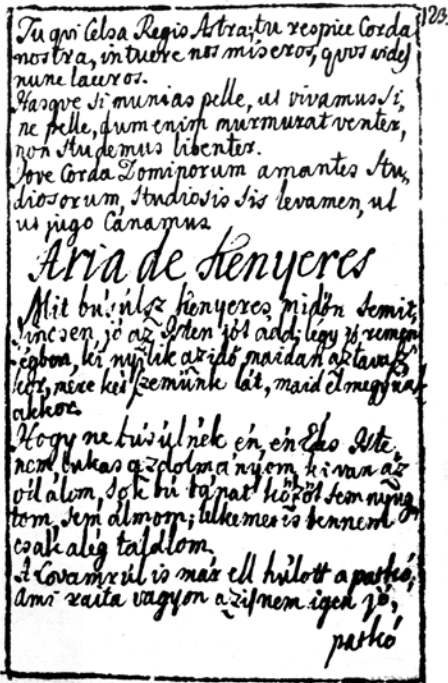 123.
Tu qui Celsa Regis Astra, tu respice Corda
nostra, intuere nos miseros, quos vides
nunc laceros.
Hasque si munias pelle, ut vivamus si,
ne pelle, dum enim murmurat venter,
non studemus libenter.
Jove Corda Dominorum amantes stu,
diosorum, studiosis sis levamen, ut
ut jugo Canamus
Aria de Kenyeres
Mit búsúlsz Kenyeres, midőn semit,
sincsen, jó az Isten jót add, légy jó remen
ségben, ki nyílik az idő majdan az tavasz
kor, mere két szemünk lát, maid el megyünk
akkor.
Hogy ne búsúlnék én, én Edes Iste,
nem, lukas a zdolmányom, ki van az
vól álom, sok bú bánat között sem nyug,
tom, sem álmom; lelkemet is bennem
csak alég találom.
A Lovamrúl is már ell húlott a patkó,
ami raita vagyon azis nem igen jó,
patkó